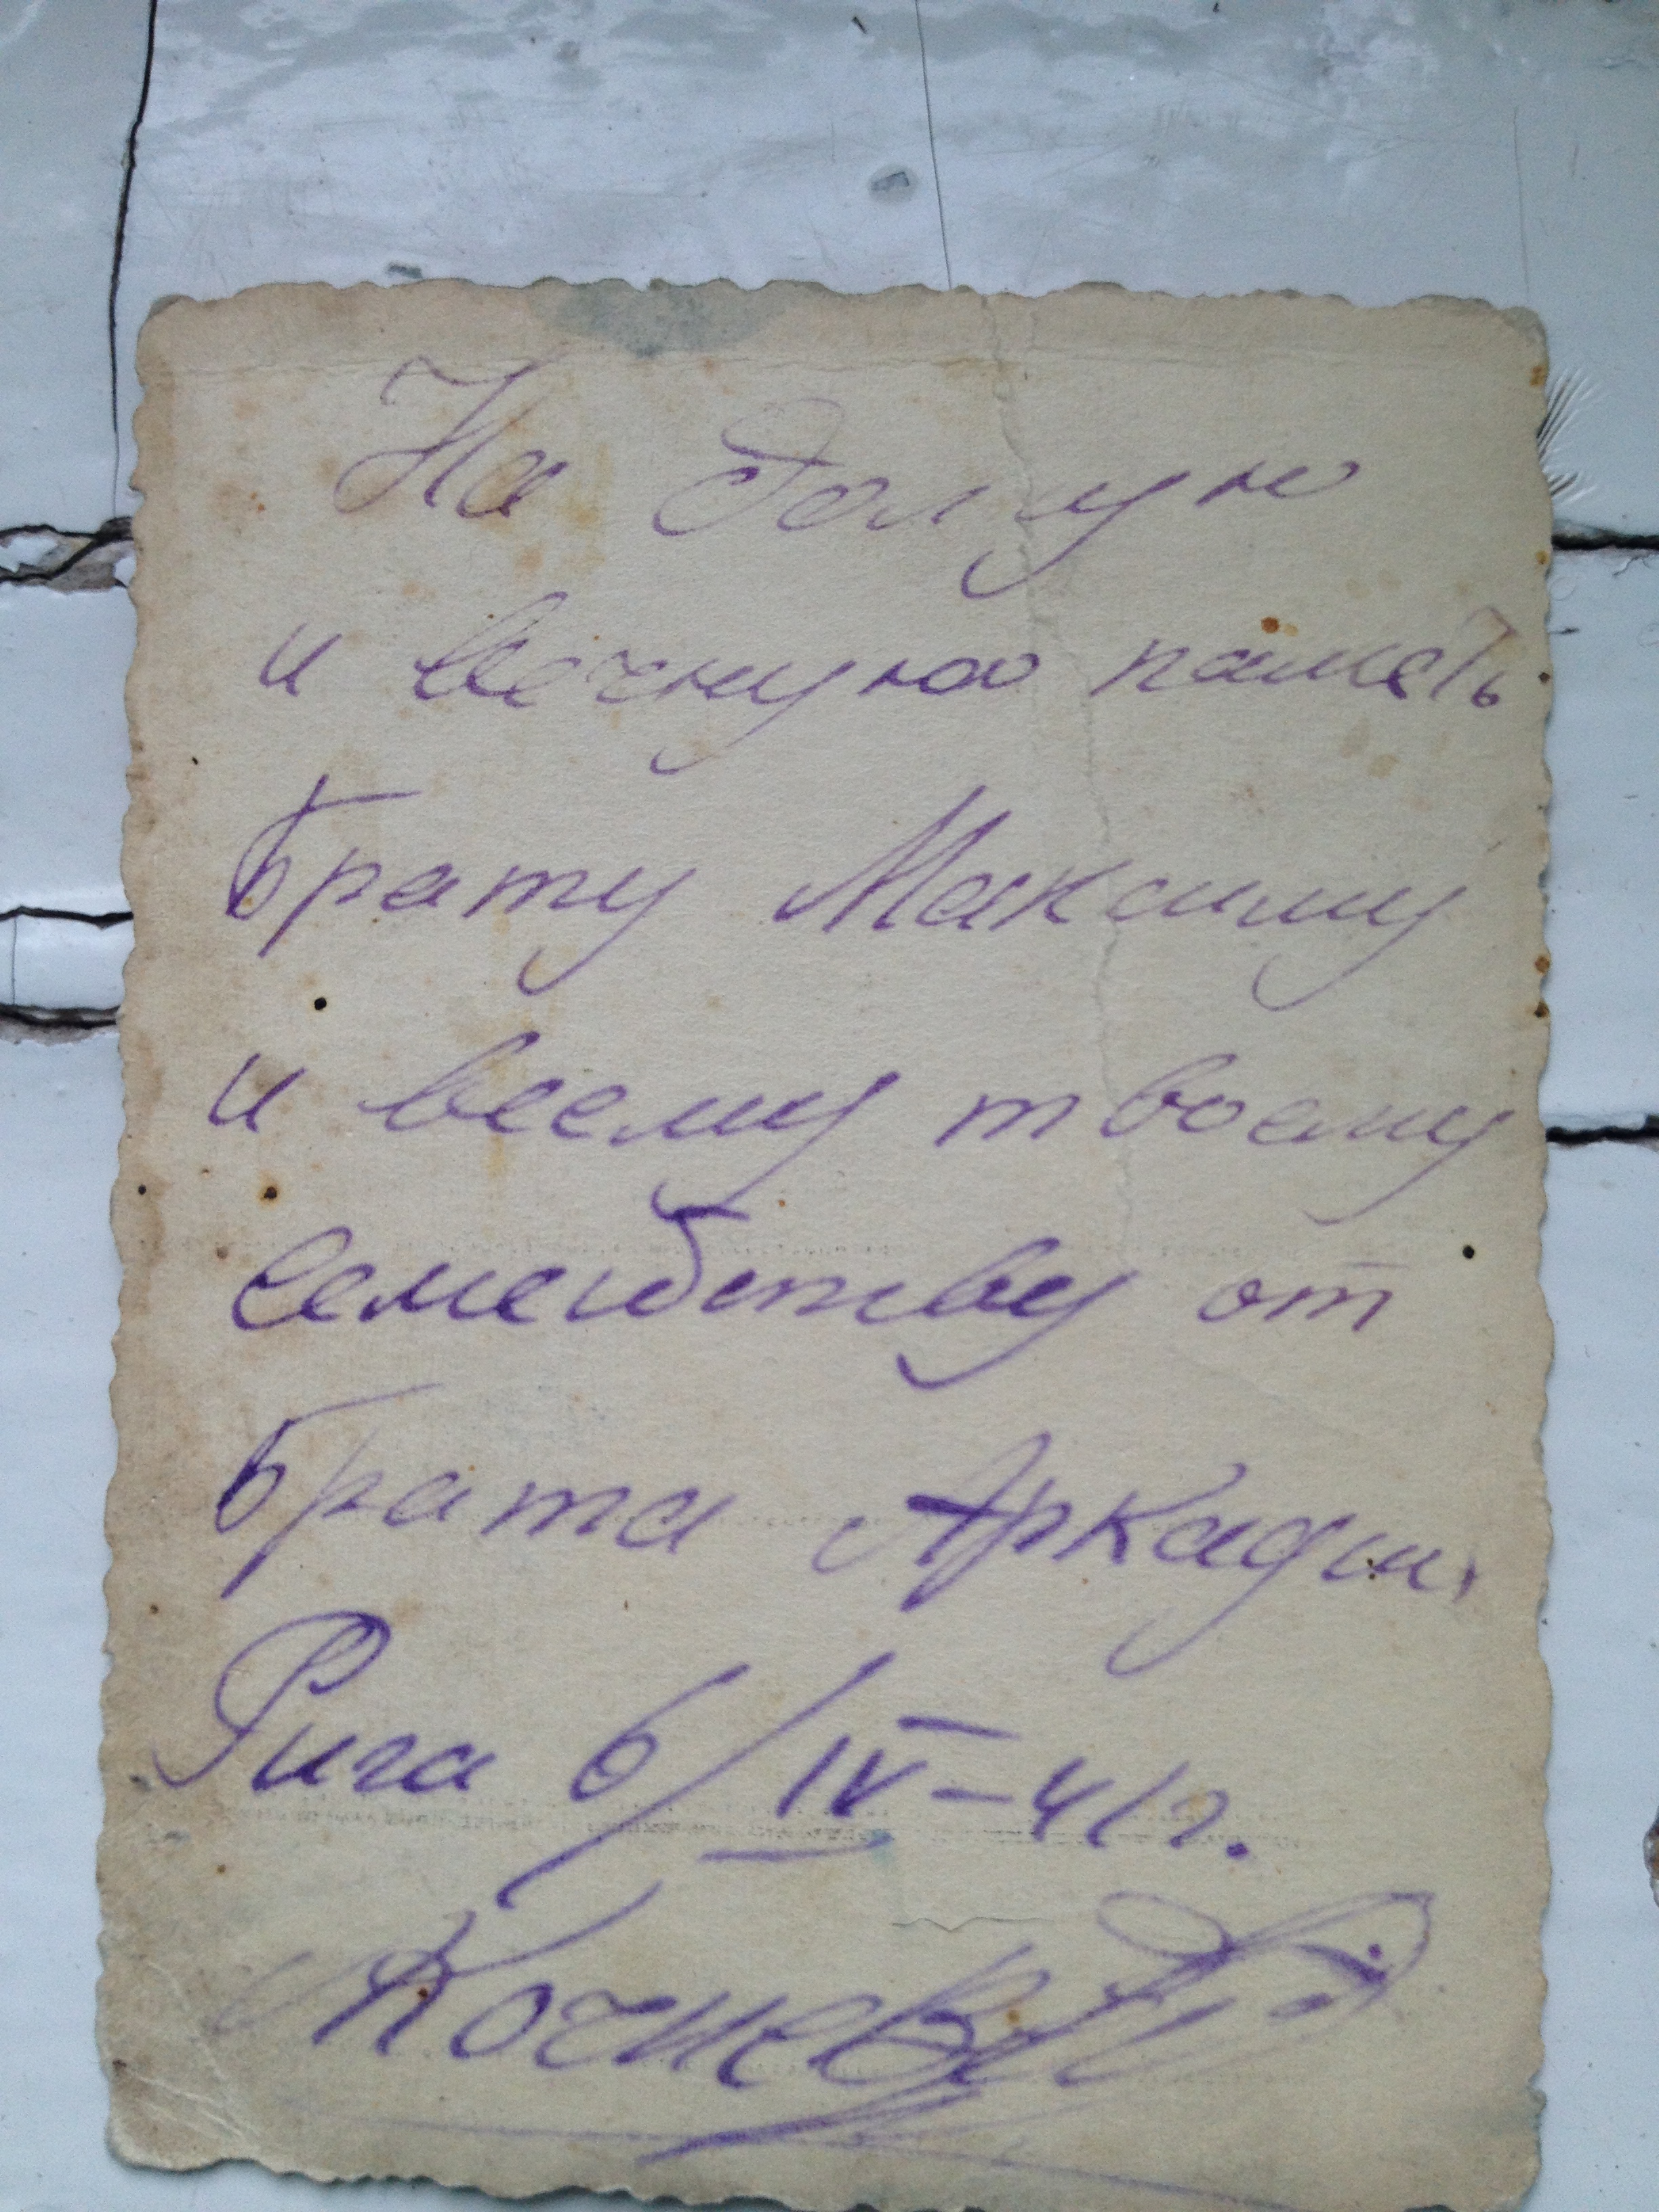 На долгую
и вечную память
брату Максиму
и всему твоему
семейству от
брата Аркадия.
Рига 6/IV-41г.
Кочнев